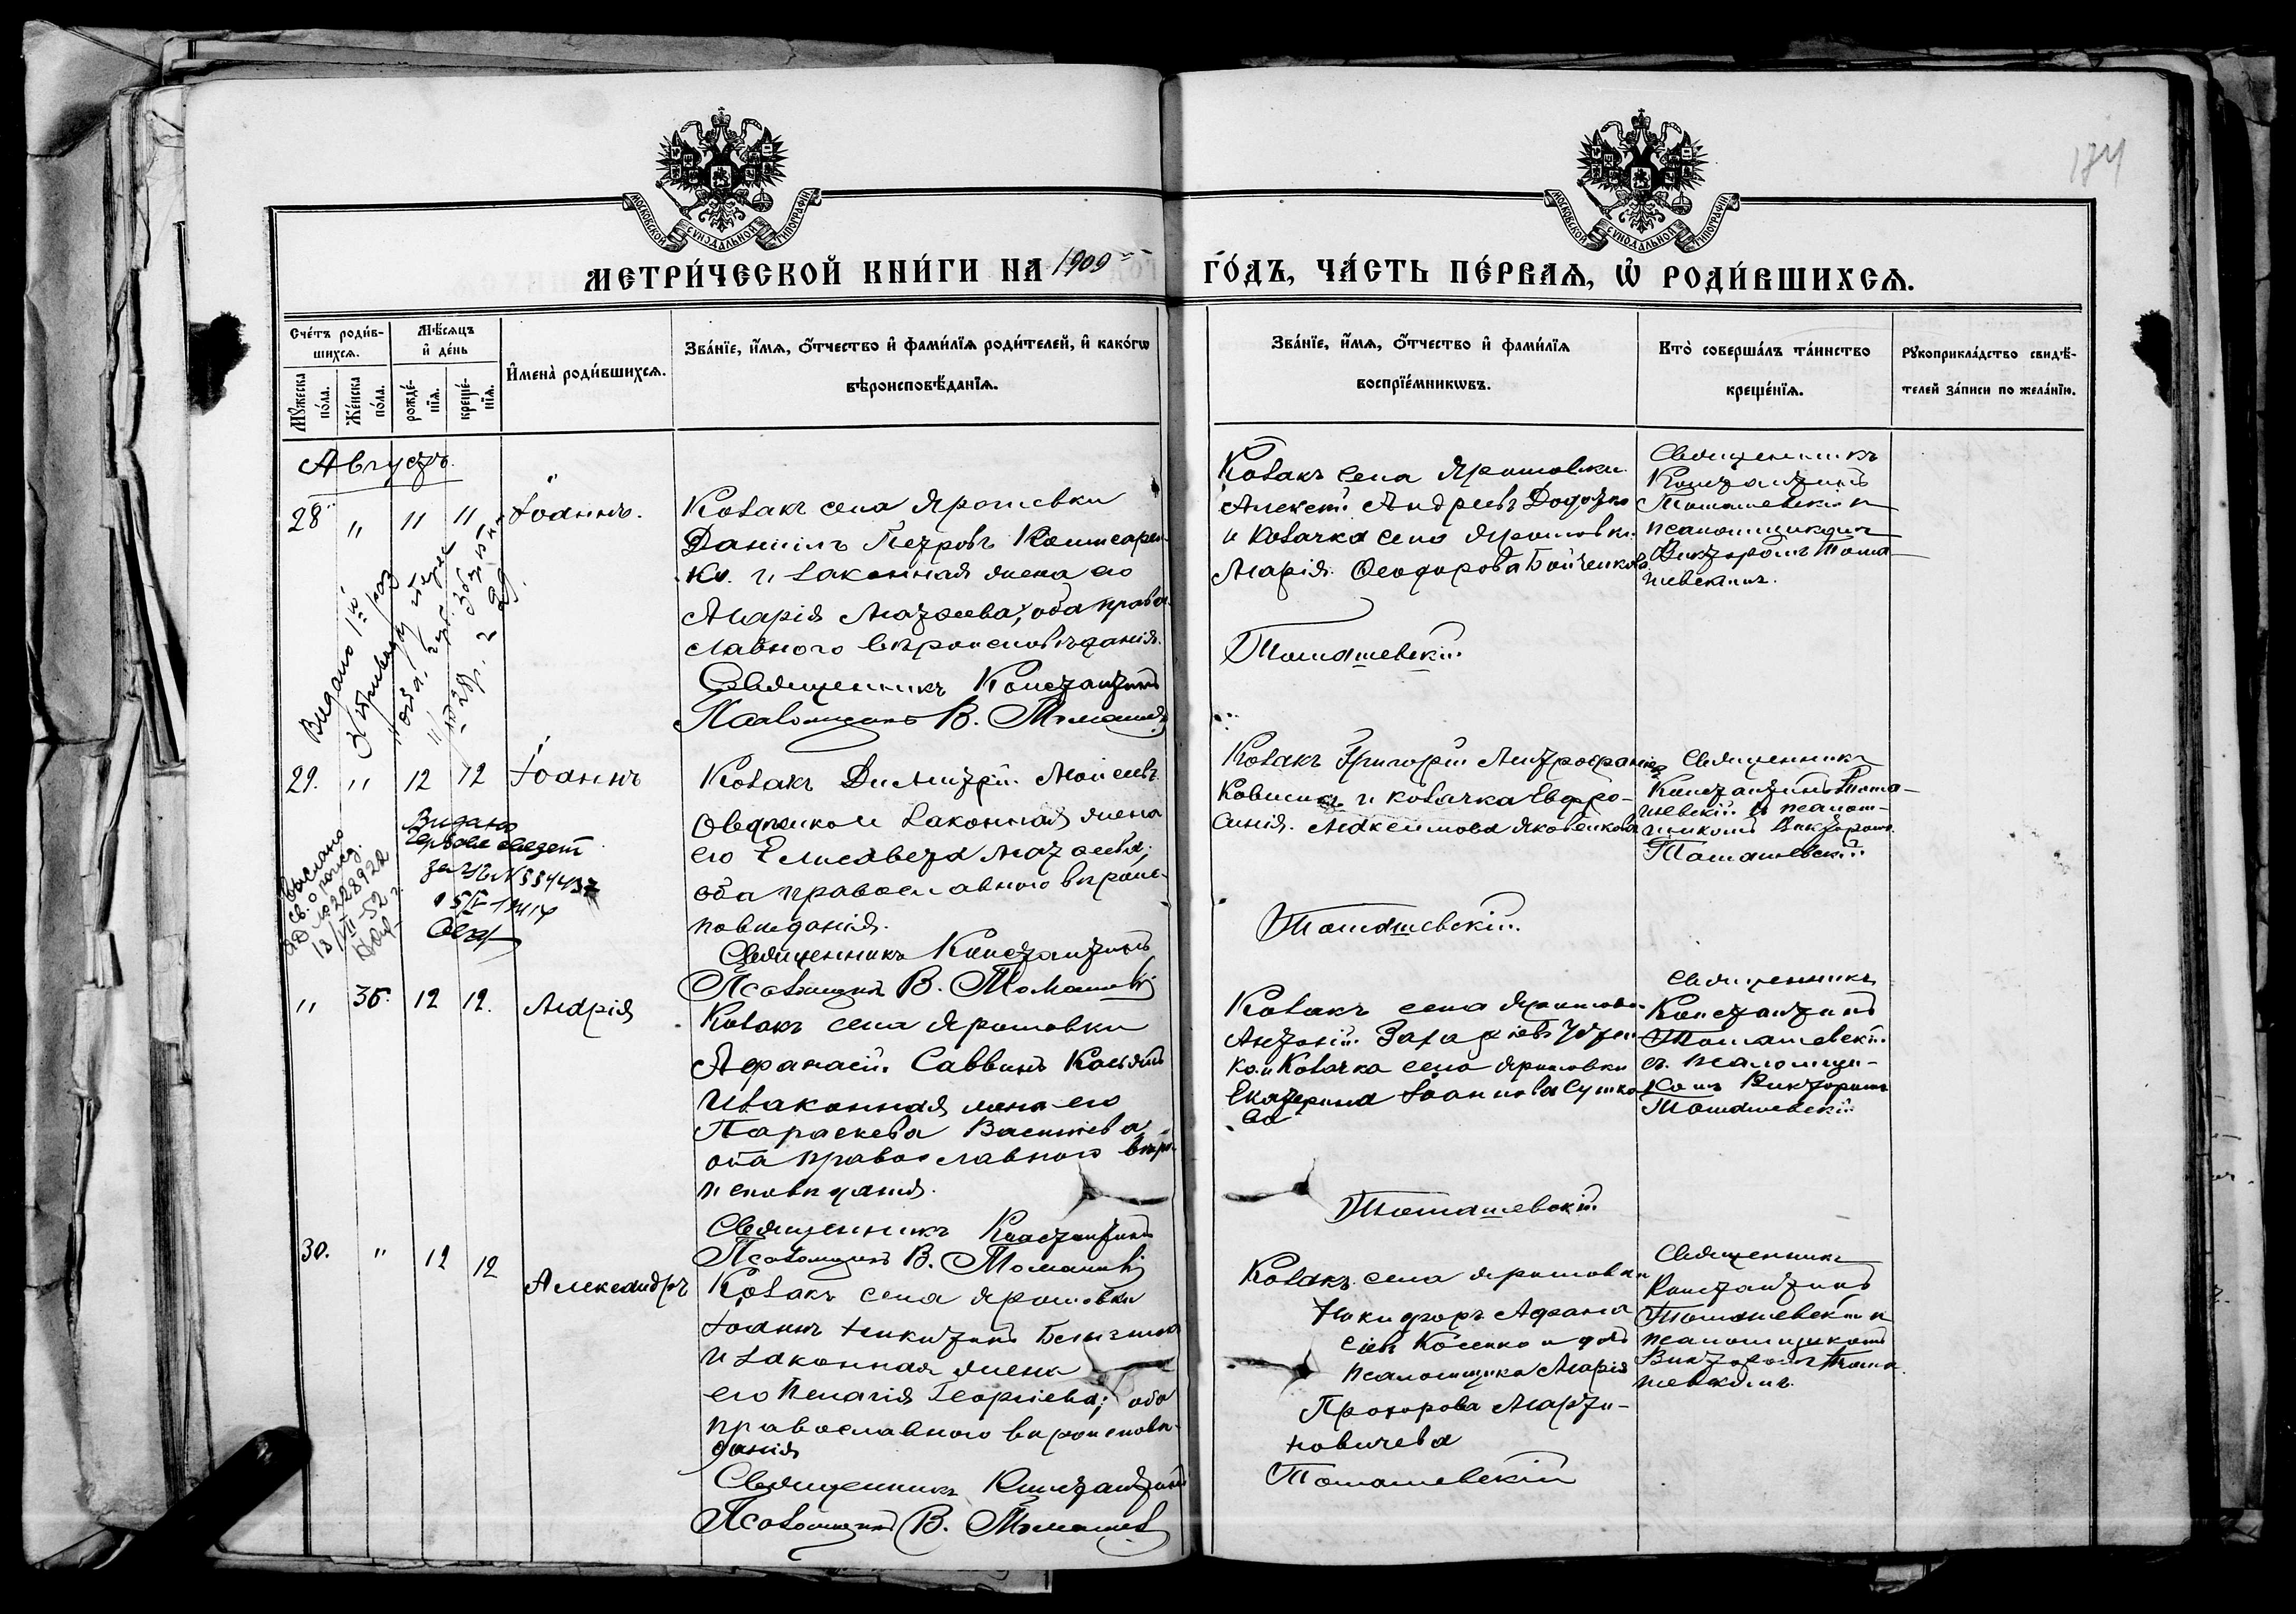 174
МОСКОВСКОЙ СУНОДАЛЬНОЙ ТИПОГРАФІИ
МОСКОВСКОЙ СУНОДАЛЬНОЙ ТИПОГРАФІИ
МЕТРИ́ЧЕСКОЙ КНИ́ГИ НА 1909
ГО́ДЪ, ЧА́СТЬ ПЕ́РВАѦ, Ѡ҆ РОДИ́ВШИХСѦ.
Сче́тъ роди́в-
шихсѧ.
Мꙋ́жеска по́ла.
Же́нска по́ла.
Мѣ́сѧцъ
и҆ де́нь
рожде́-
нїѧ.
креще́-
нїѧ.
И҆мена̀ роди́вшихсѧ.
Зва́нїе, и҆́мѧ, ѻ҆́тчество и҆ фами́лїѧ роди́телей, и҆ како́гѡ
вѣроисповѣ́данїѧ.
Зва́нїе, и҆́мѧ, ѻ҆́тчество и҆ фами́лїѧ
воспрїе́мникѡвъ.
Кто̀ соверша́лъ та́инство
креще́нїѧ.
Рꙋкоприкла́дство свидѣ́-
телей за́писи по жела́нїю.
Августъ.
28 " 11 11 Іоаннъ.
Козакъ села Ярошовки
Даніилъ Петровъ
и законная жена его
Марія Матѳеева, оба право
славного вѣроисповѣданія.
Священникъ Константинъ
Псаломщикъ В. Томашев
Козакъ села Ярошовки
Алексѣй Андреевъ
и козачка села Ярошовки
Марія Ѳеодорова Бойченкова
Томашевскій
Священникъ
Константинъ
Томашевскій и
псаломщикомъ
Викторомъ Тома
шевскимъ.
Видано
29. " 12 12 Іоаннъ
Козакъ Димитрій Моисеевъ
законная жена
его Елисавета Матѳеева;
оба православного вѣроис
повѣданія.
Священникъ Константинъ
Псаломщикъ В. Томашевскій
Козакъ Григорій Митрофановъ
и козачка Евфро-
синія Максимова Яковенкова
Томашевскій.
Священникъ
Константинъ Тома-
шевскій и псалом-
щикомъ Викторомъ
Томашевскій.
Видано
за № 584437
Выслано
св. о рожд.
№ 228922
18/VII-52 г.
" 35. 12 12. Марія
Козакъ села Ярошовки
Афанасій Саввинъ
и законная жена его
Параскева Васильева
оба православного вѣро
исповѣданія.
Священникъ Константинъ
Псаломщикъ В. Томашевскій
Козакъ села Ярошовки
Антоній Захаріевъ
ко и Козачка села Ярошовки
Екатерина Іоаннова Сушко
ва
Томашевскій
Священникъ
Константинъ
Томашевскій
съ псаломщи-
комъ Викторомъ
Томашевскій
30. " 12 12 Александръ
Козакъ села Ярошовки
Іоаннъ Никитинъ
и законная жена
его Пелагія Георгіева; оба
православного вѣроисповѣ-
данія
Священникъ Константинъ
Псаломщикъ В. Томашев
Козакъ села Ярошовки
Никифоръ Афана
сіевъ Косенко и
псаломщика Марія
Прохорова Марти-
новичева
Томашевскій
Священникъ
Константинъ
Томашевскій и
псаломщикомъ
Викторомъ Тома
шевскимъ.